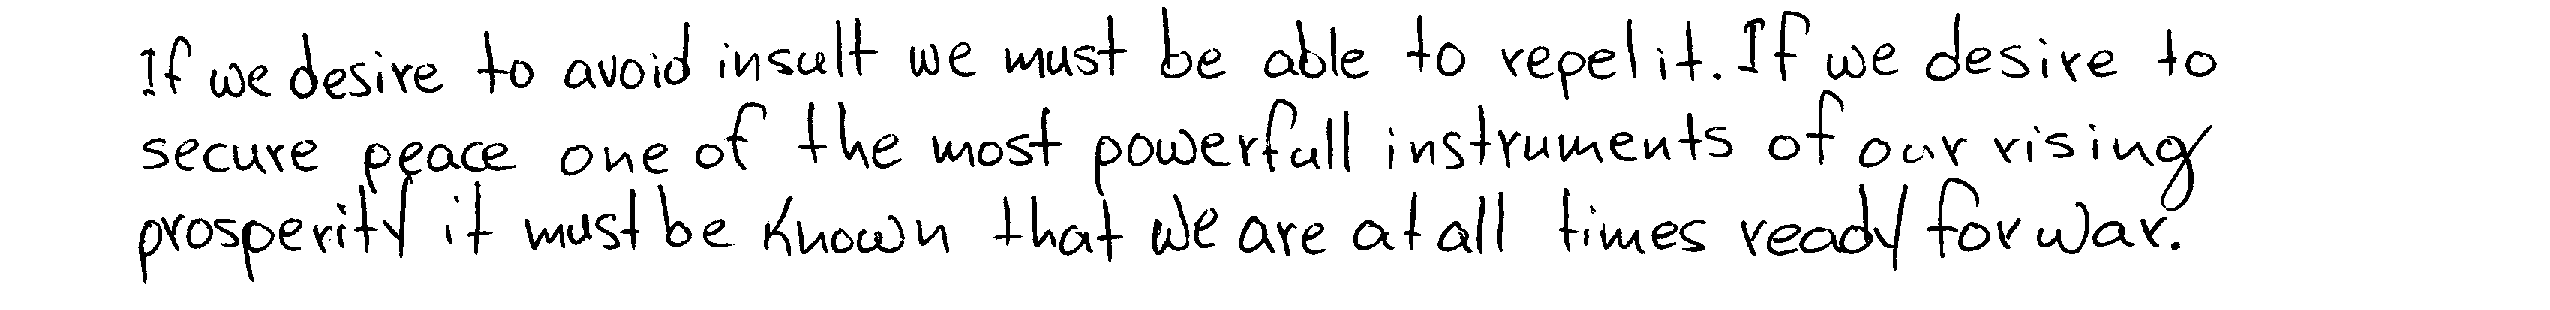 If we desire to avoid insult we must be able to repel it. If we desire to
secure peace one of the most powerfull instruments of our rising
prosperity it must be known that we are at all times ready for war.